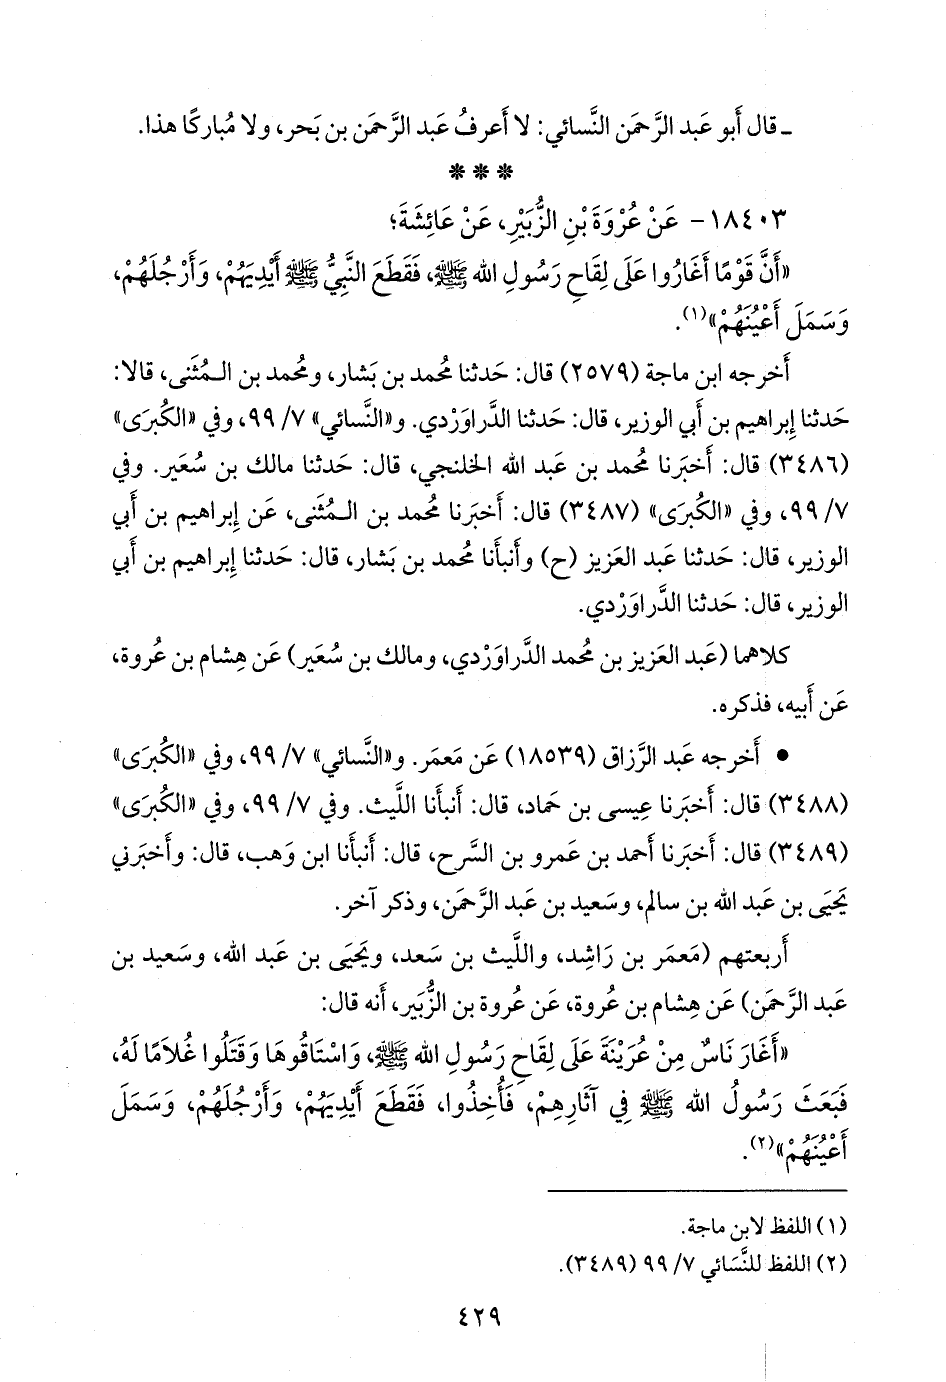 ـ قال أَبو عَبد الرَّحمَن النَّسائي: لا أَعرفُ عَبد الرَّحمَن بن بَحر، ولا مُباركًا هذا.
* * *
١٨٤٠٣ - عَنْ عُرْوَةَ بْنِ الزُّبَيْرِ، عَنْ عَائِشَةَ؛
«أَنَّ قَوْمًا أَغَارُوا عَلَى لِقَاحِ رَسُولِ الله ﷺ، فَقَطَعَ النَّبِيُّ ﷺ أَيْدِيَهُمْ، وَأَرْجُلَهُمْ،
وَسَمَلَ أَعْيُنَهُمْ»(١).
أَخرجه ابن ماجة (٢٥٧٩) قال: حَدثنا مُحمد بن بَشار، ومُحمد بن الـمُثَنى، قالا:
حَدثنا إِبراهيم بن أَبي الوزير، قال: حَدثنا الدَّراوَرْدي. و«النَّسائي» ٧/ ٩٩، وفي «الكُبرَى»
(٣٤٨٦) قال: أَخبَرنا مُحمد بن عَبد الله الخلنجي، قال: حَدثنا مالك بن سُعَير. وفي
٧/ ٩٩، وفي «الكُبرَى» (٣٤٨٧) قال: أَخبَرنا مُحمد بن الـمُثَنى، عَن إِبراهيم بن أَبي
الوزير، قال: حَدثنا عَبد العَزيز (ح) وأَنبأَنا مُحمد بن بَشار، قال: حَدثنا إِبراهيم بن أَبي
الوزير، قال: حَدثنا الدَّراوَرْدي.
كلاهما (عَبد العَزيز بن مُحمد الدَّراوَرْدي، ومالك بن سُعَير) عَن هِشام بن عُروة،
عَن أَبيه، فذكره.
• أَخرجه عَبد الرَّزاق (١٨٥٣٩) عَن مَعمَر. و«النَّسائي» ٧/ ٩٩، وفي «الكُبرَى»
(٣٤٨٨) قال: أَخبَرنا عِيسى بن حَماد، قال: أَنبأَنا اللَّيث. وفي ٧/ ٩٩، وفي «الكُبرَى»
(٣٤٨٩) قال: أَخبَرنا أَحمد بن عَمرو بن السَّرح، قال: أَنبأَنا ابن وَهب، قال: وأَخبَرني
يَحيَى بن عَبد الله بن سالم، وسَعيد بن عَبد الرَّحمَن، وذكر آخر.
أَربعتهم (مَعمَر بن رَاشِد، واللَّيث بن سَعد، ويَحيَى بن عَبد الله، وسَعيد بن
عَبد الرَّحمَن) عَن هِشام بن عُروة، عَن عُروة بن الزُّبَير، أَنه قال:
«أَغَارَ نَاسٌ مِنْ عُرَيْنَةَ عَلَى لِقَاحِ رَسُولِ الله ﷺ، وَاسْتَاقُوهَا وَقَتَلُوا غُلَامًا لَهُ،
فَبَعَثَ رَسُولُ الله ﷺ فِي آثَارِهِمْ، فَأُخِذُوا، فَقَطَعَ أَيْدِيَهُمْ، وَأَرْجُلَهُمْ، وَسَمَلَ
أَعْيُنَهُمْ»(٢).
(١) اللفظ لابن ماجة.
(٢) اللفظ للنَّسَائي ٧/ ٩٩ (٣٤٨٩).
٤٢٩